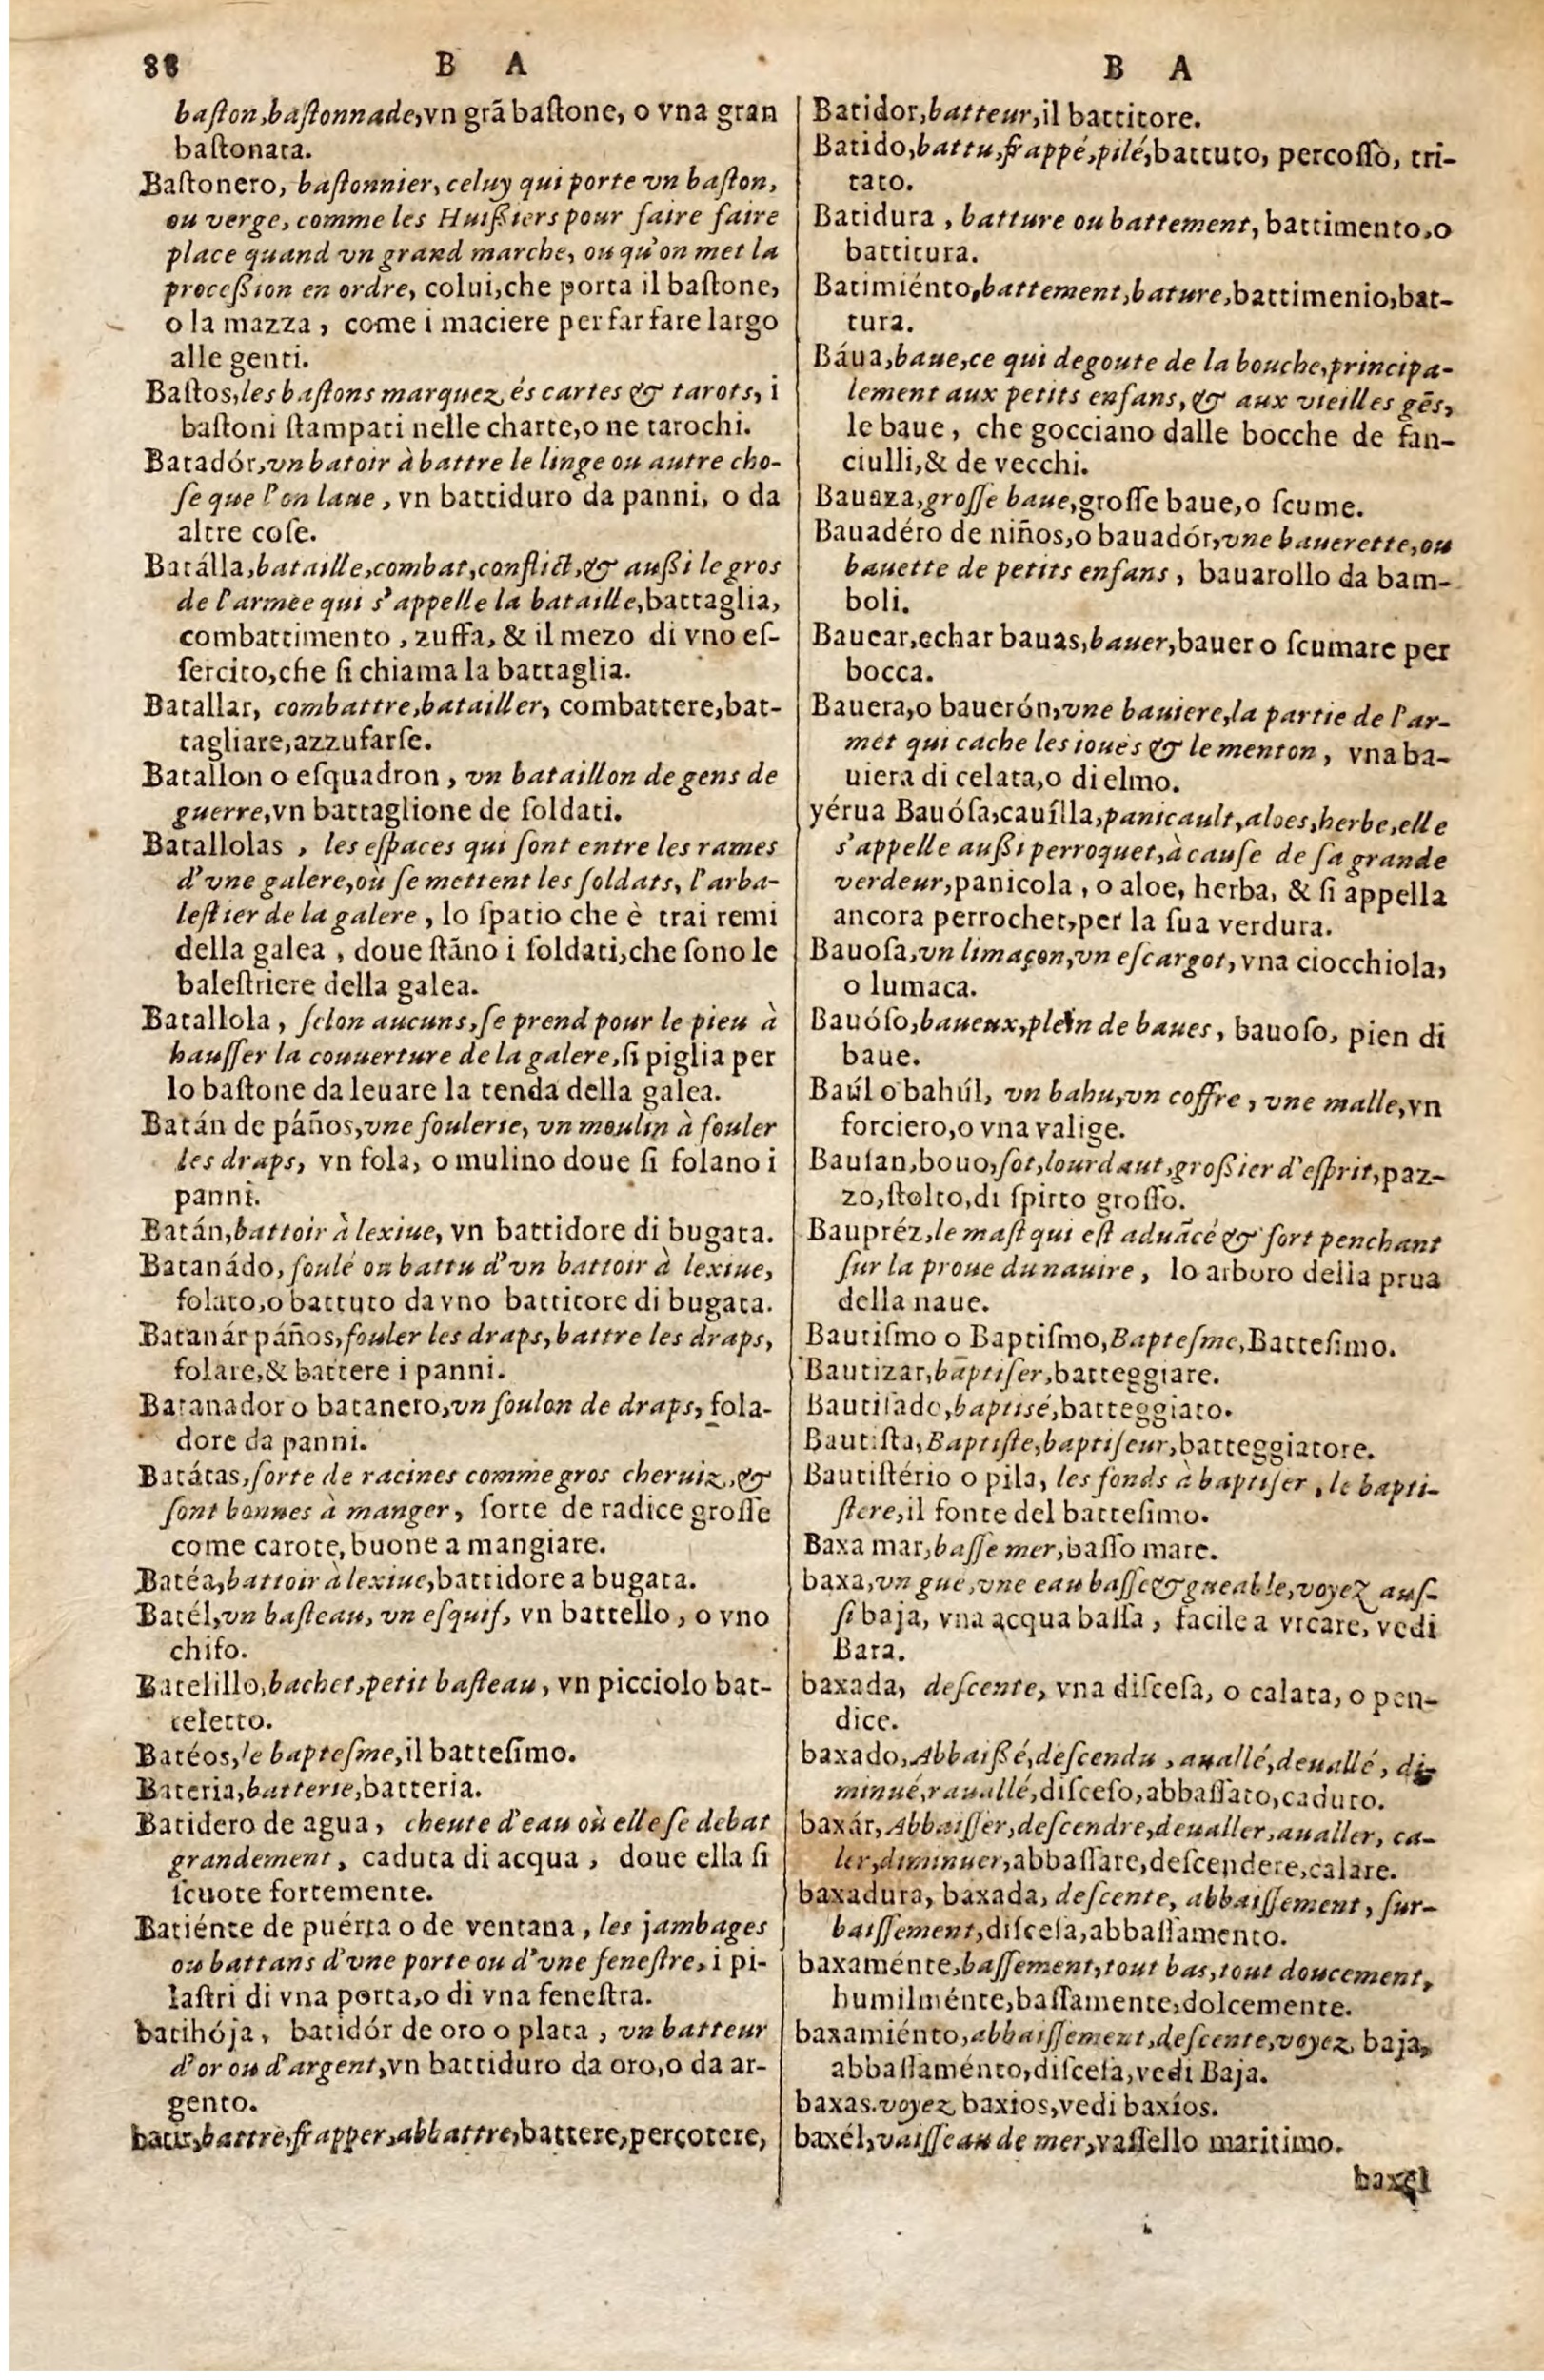 88
B A
baſton, baſtonnade, vn grã baſtone, o vna gran
baſtonata.
Baſtonero, baſtonnier, celuy qui porte vn baſton,
ou verge, comme les Huißiers pour faire faire
place quand vn grand marche, ou qu'on met la
proceßion en ordre, colui, che porta il baſtone,
o la mazza, come i maciere per far fare largo
alle genti.
Baſtos, les baſtons marquez és cartes & tarots, i
baſtoni ſtampati nelle charte, o ne tarochi.
Batadór, vn batoir à battre le linge ou autre cho-
ſe que l'on laue, vn battiduro da panni, o da
altre coſe.
Batálla, bataille, combat, conflict, & außi le gros
de l'armee qui s'appelle la bataille, battaglia,
combattimento, zuffa, & il mezo di vno eſ-
ſercito, che ſi chiama la battaglia.
Batallar, combattre, batailler, combattere, bat-
tagliare, azzufarſe.
Batallon o eſquadron, vn bataillon de gens de
guerre, vn battaglione de ſoldati.
Batallolas, les eſpaces qui ſont entre les rames
d'vne galere, où ſe mettent les ſoldats, l'arba-
leſtier de la galere, lo ſpatio che è trai remi
della galea, doue ſtãno i ſoldati, che ſono le
baleſtriere della galea.
Batallola, ſelon aucuns, ſe prend pour le pieu à
hauſſer la couuerture de la galere, ſi piglia per
lo baſtone da leuare la tenda della galea.
Batán de páños, vne foulerie, vn moulin à fouler
les draps, vn fola, o mulino doue ſi folano i
panni.
Batán, battoir à lexiue, vn battidore di bugata.
Batanádo, foulé ou battu d'vn battoir à lexiue,
folato, o battuto da vno battitore di bugata.
Batanár páños, fouler les draps, battre les draps,
folare, & battere i panni.
Batanador o batanero, vn foulon de draps, fola-
dore da panni.
Batátas, ſorte de racines comme gros cheruiz, &
ſont bonnes à manger, ſorte de radice groſſe
come carote, buone a mangiare.
Batéa, battoir à lexiue, battidore a bugata.
Batél, vn baſteau, vn eſquif, vn battello, o vno
chifo.
Batelillo, bachet, petit baſteau, vn picciolo bat-
teletto.
Batéos, le bapteſme, il batteſimo.
Bateria, batterie, batteria.
Batidero de agua, cheute d'eau où elle ſe debat
grandement, caduta di acqua, doue ella ſi
ſcuote fortemente.
Batiénte de puérta o de ventana, les jambages
ou battans d'vne porte ou d'vne feneſtre, i pi-
laſtri di vna porta, o di vna feneſtra.
batihója, batidór de oro o plata, vn batteur
d'or ou d'argent, vn battiduro da oro, o da ar-
gento.
batir, battre, frapper, abbattre, battere, percotere,
B A
Batidor, batteur, il battitore.
Batido, battu, frappé, pilé, battuto, percoſſo, tri-
tato.
Batidura, batture ou battement, battimento, o
battitura.
Batimiénto, battement, bature, battimenio, bat-
tura.
Báua, baue, ce qui degoute de la bouche, principa-
lement aux petits enfans, & aux vieilles gẽs,
le baue, che gocciano dalle bocche de fan-
ciulli, & de vecchi.
Bauaza, groſſe baue, groſſe baue, o ſcume.
Bauadéro de niños, o bauadór, vne bauerette, ou
bauette de petits enfans, bauarollo da bam-
boli.
Bauear, echar bauas, bauer, bauer o ſcumare per
bocca.
Bauera, o bauerón, vne bauiere, la partie de l'ar-
met qui cache les ioues & le menton, vna ba-
uiera di celata, o di elmo.
yérua Bauóſa, cauílla, panicault, aloes, herbe, elle
s'appelle außi perroquet, à cauſe de ſa grande
verdeur, panicola, o aloe, herba, & ſi appella
ancora perrochet, per la ſua verdura.
Bauoſa, vn limaçon, vn eſcargot, vna ciocchiola,
o lumaca.
Bauóſo, baueux, plein de baues, bauoſo, pien di
baue.
Baúl o bahúl, vn bahu, vn coffre, vne malle, vn
forciero, o vna valige.
Bauſan, bouo, ſot, lourdaut, großier d'eſprit, paz-
zo, ſtolto, di ſpirto groſſo.
Baupréz, le maſt qui eſt aduãcé & fort penchant
ſur la proue du nauire, lo arboro della prua
della naue.
Bautiſmo o Baptiſmo, Bapteſme, Batteſimo.
Bautizar, baptiſer, batteggiare.
Bautiſado, baptisé, batteggiato.
Bautiſta, Baptiſte, baptiſeur, batteggiatore.
Bautiſtério o pila, les fonds à baptiſer, le bapti-
ſtere, il fonte del batteſimo.
Baxa mar, baſſe mer, baſſo mare.
baxa, vn gué, vne eau baſſe & gueable, voyez auſ-
ſi baja, vna acqua baſſa, facile a vrcare, vedi
Bara.
baxada, deſcente, vna diſceſa, o calata, o pen-
dice.
baxado, Abbaißé, deſcendu, auallé, deuallé, di-
minué, rauallé, diſceſo, abbaſſato, caduto.
baxár, Abbaiſſer, deſcendre, deualler, aualler, ca-
ler, diminuer, abbaſſare, deſcendere, calare.
baxadura, baxada, deſcente, abbaiſſement, ſur-
baiſſement, diſceſa, abbaſſamento.
baxaménte, baſſement, tout bas, tout doucement,
humilménte, baſſamente, dolcemente.
baxamiénto, abbaiſſement, deſcente, voyez baja,
abbaſſaménto, diſceſa, vedi Baja.
baxas. voyez baxios, vedi baxíos.
baxél, vaiſſeau de mer, vaſſello maritimo.
baxel